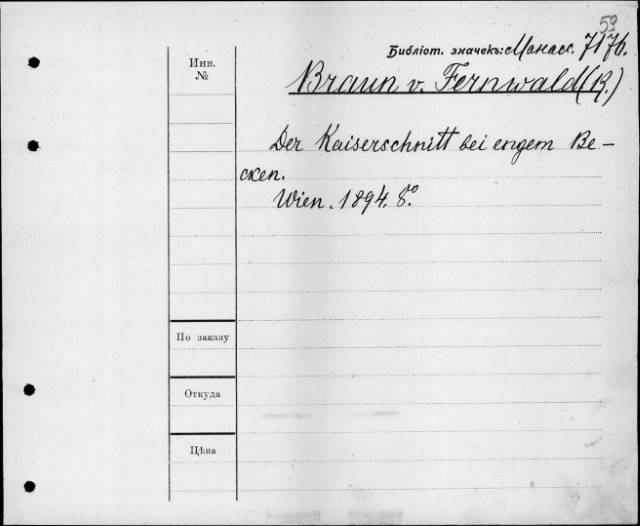 50
Библіот. значекъ: Манасс. 7176.
Инв.
№
Braun v. Fernwald (R.)
Der Kaiserschnitt bei engem Be-
cken.
Wien. 1894. 8º.
По заказу
Откуда
Цѣна